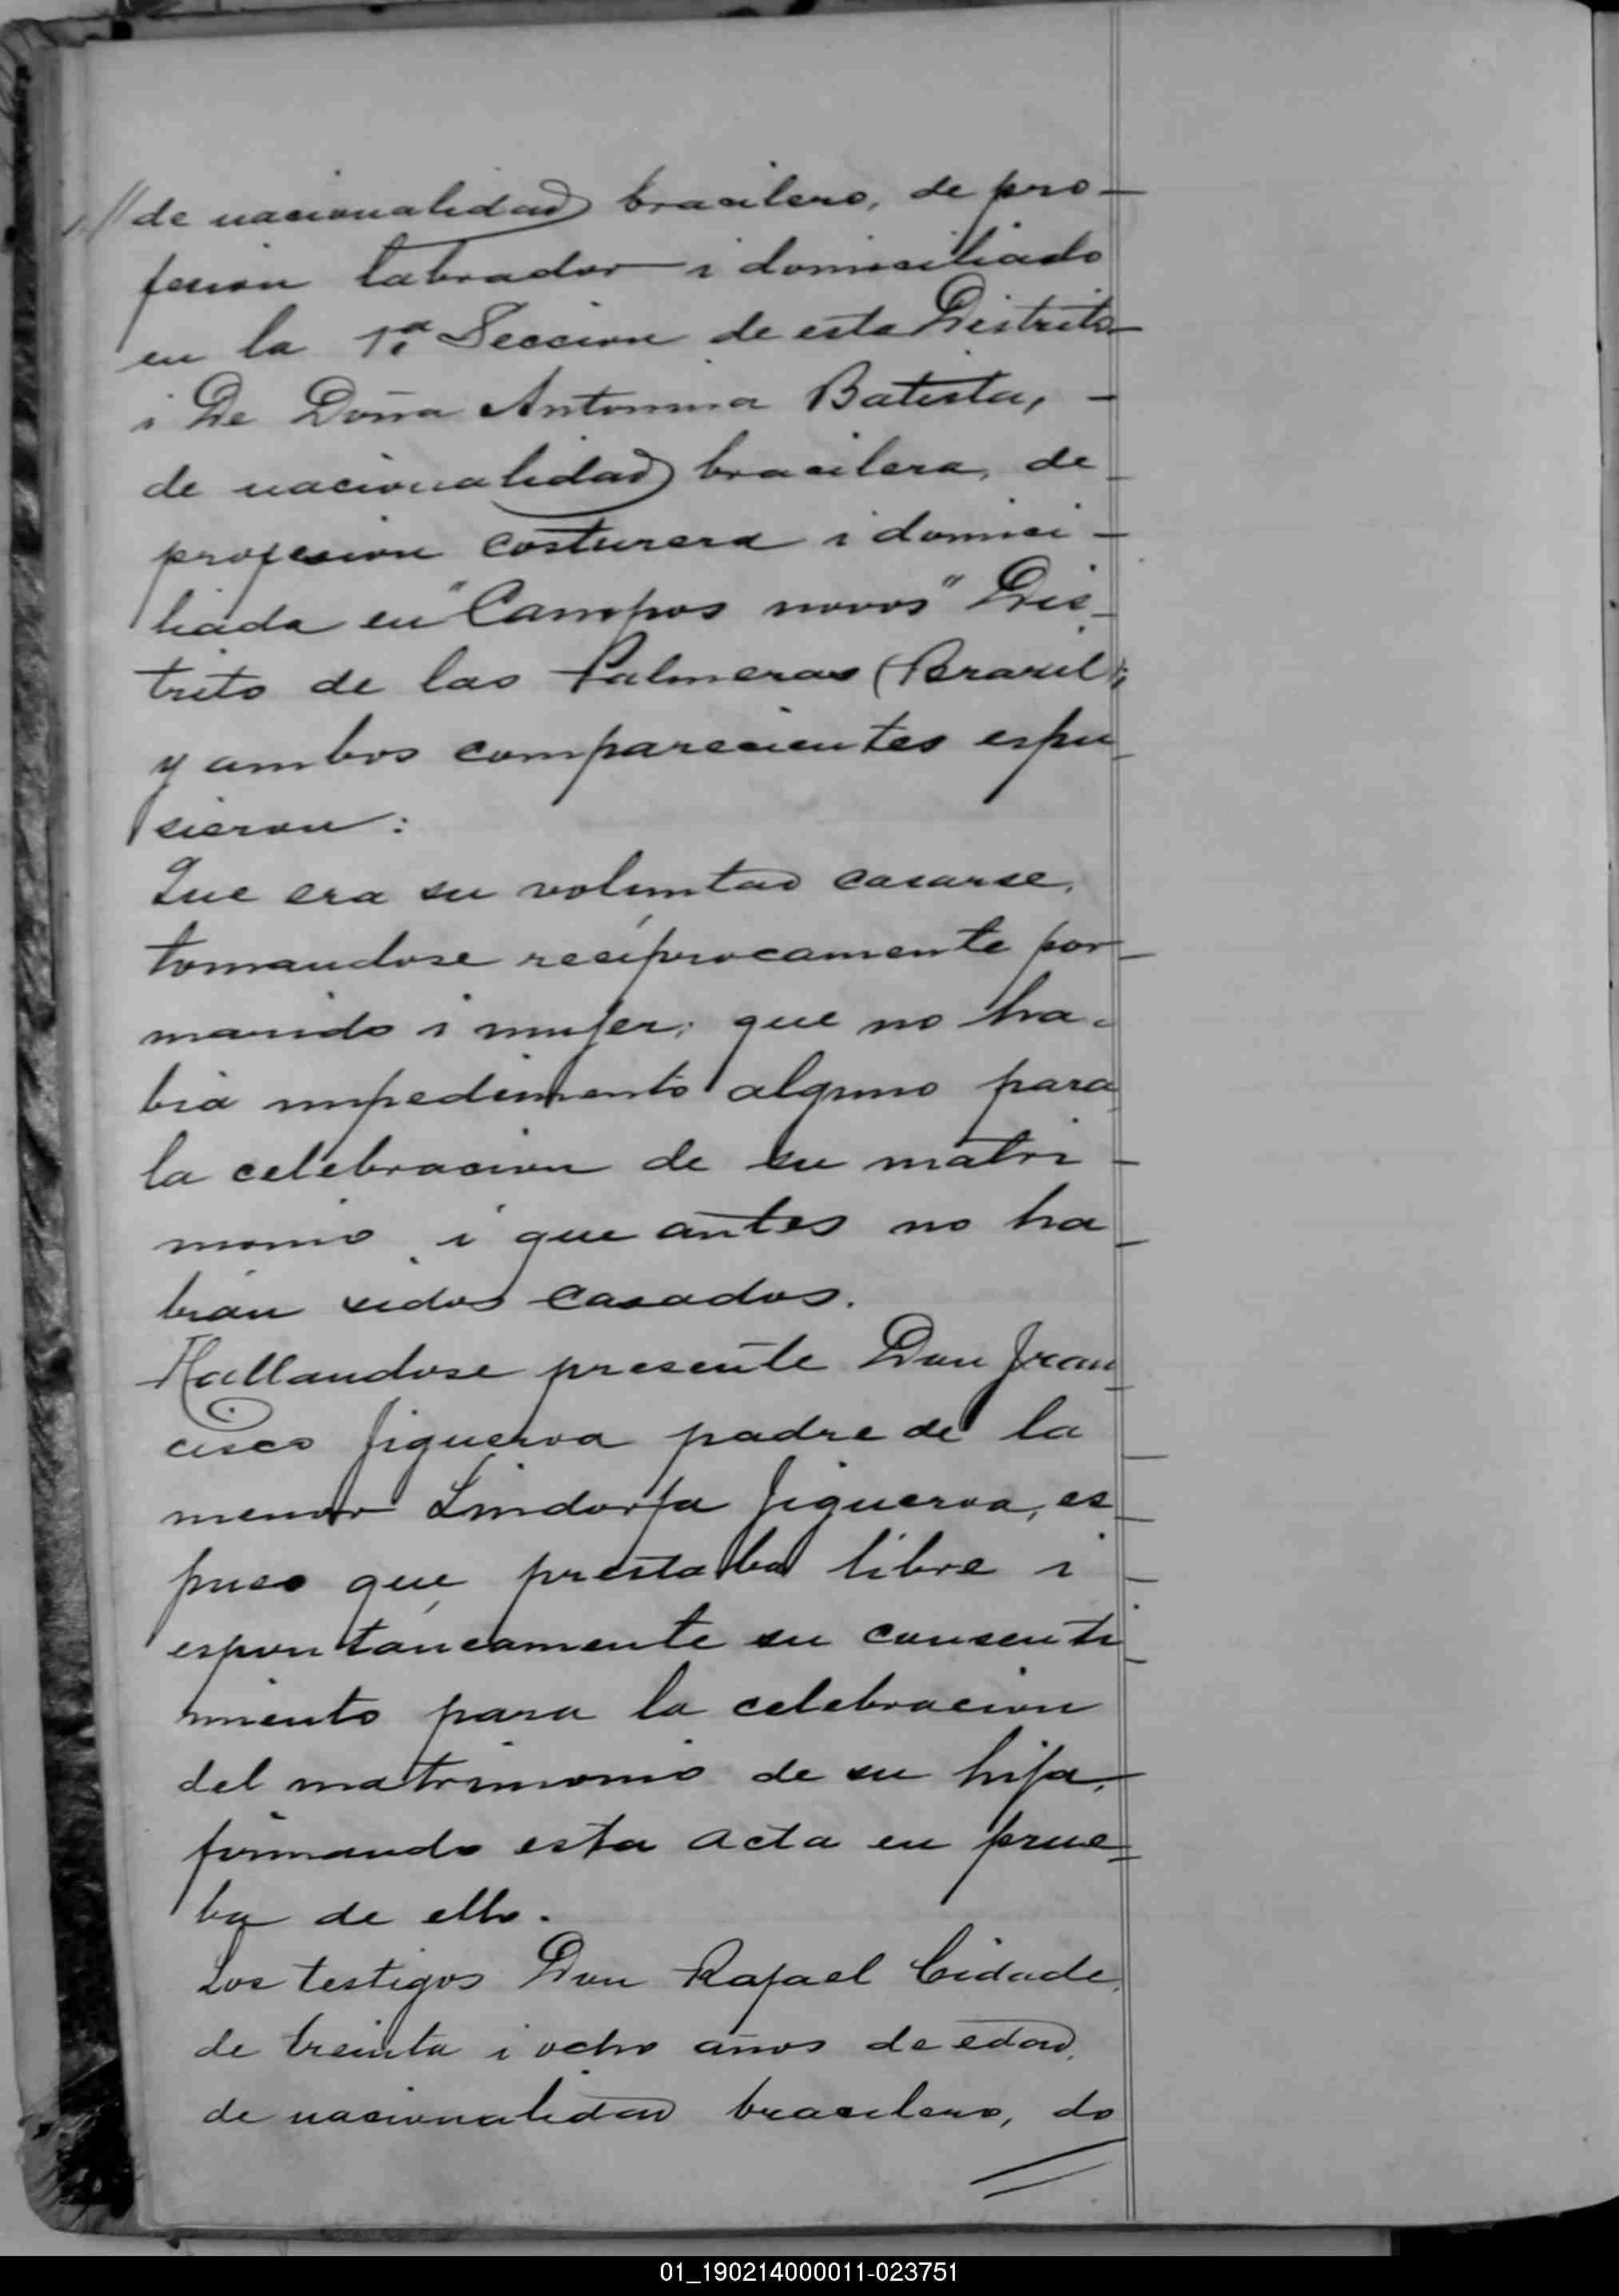 // de nacionalidad brasilero, de pro-
fesion labrador i domiciliado
en la 1ª Seccion de este Distrito
i De Doña Antonina Batista,
de nacionalidad brasilera, de
profesion costurera i domici-
liada en "Campos novos" Dis-
trito de las Palmeras (Brazil);
y ambos comparecientes espu
sieron:
Que era su voluntad casarse,
tomandose recíprocamente por
marido i mujer; que no ha-
bia impedimento alguno para
la celebracion de su matri-
monio i que antes no ha
bian sidos casados.
Hallandose presente Don Fran
cisco Figueroa padre de la
menor Lindorfa Figueroa, es
puso que prestaba libre i
espontáneamente su consenti
miento para la celebracion
del matrimonio de su hija,
firmando esta acta en prue=
ba de ello.
Los testigos Don Rafael Cidade,
de treinta i ocho años de edad,
de nacionalidad brasilero, do
01_190214000011-023751